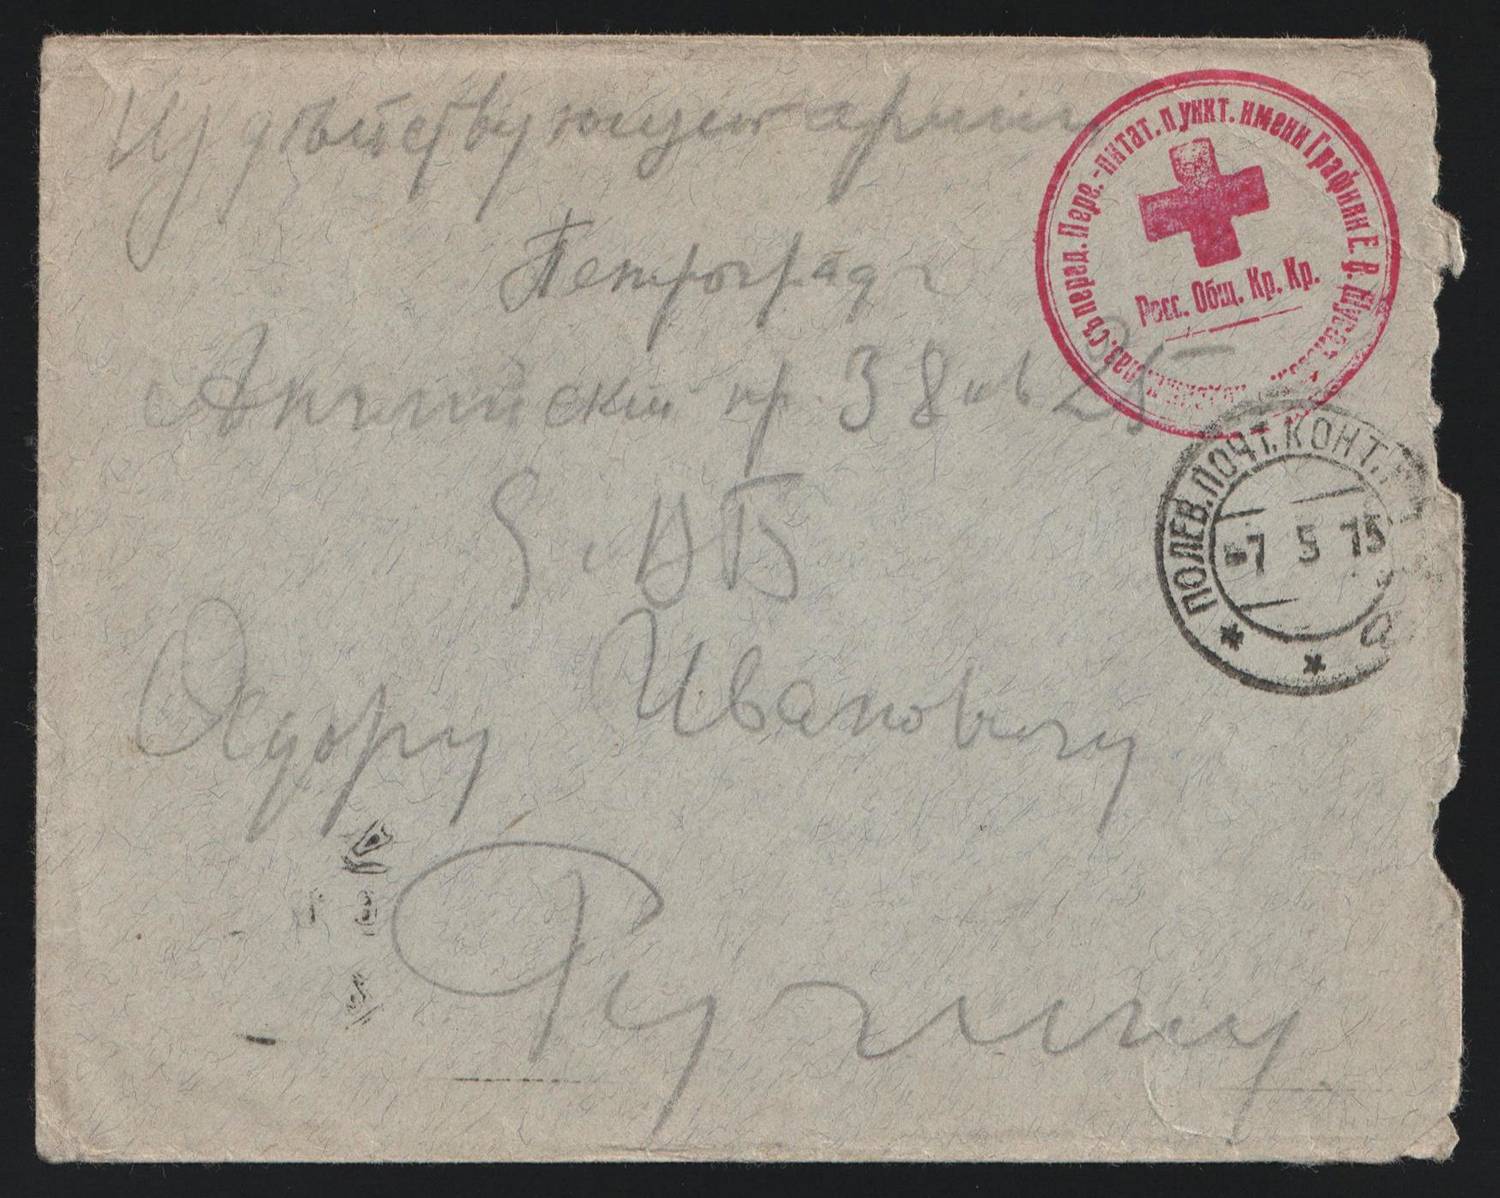 Изъ дѣйствующей арміи
Петроград
Англійскій пр. 38 кв 25
Е. ВБ
Федору Ивановичу
Ручкину
лаз. съ перед. Пере.-питат. пункт. имени Графини Е. В. Шуваловой
Росс. Общ. Кр. Кр.
ПОЛЕВ. ПОЧТ. КОНТ.
-7 5 15
а